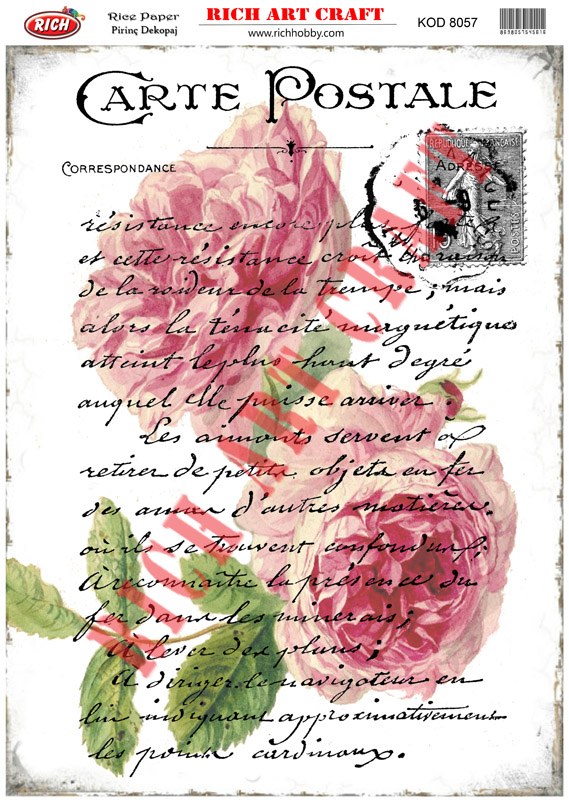 RICH
Rice Paper
Pirinç Dekopaj
RICH ART CRAFT
www.richhobby.com
KOD 8057
CARTE POSTALE
CORRESPONDANCE
REPUBLIQUE FRANÇAISE
POSTES
RICH ART CRAFT
résistance encore plus
et cette résistance croît en raison
de la roideur de la trempe ; mais
alors la ténacité magnétique
atteint le plus haut degré
auquel elle puisse arriver.
Les aimants servent à
retirer de petits objets en fer
des amas d'autres matières.
où ils se trouvent confondus ;
A reconnaître la présence du
fer dans les minerais ;
A lever des plans ;
A diriger le navigateur en
lui indiquant approximativement
les points cardinaux.